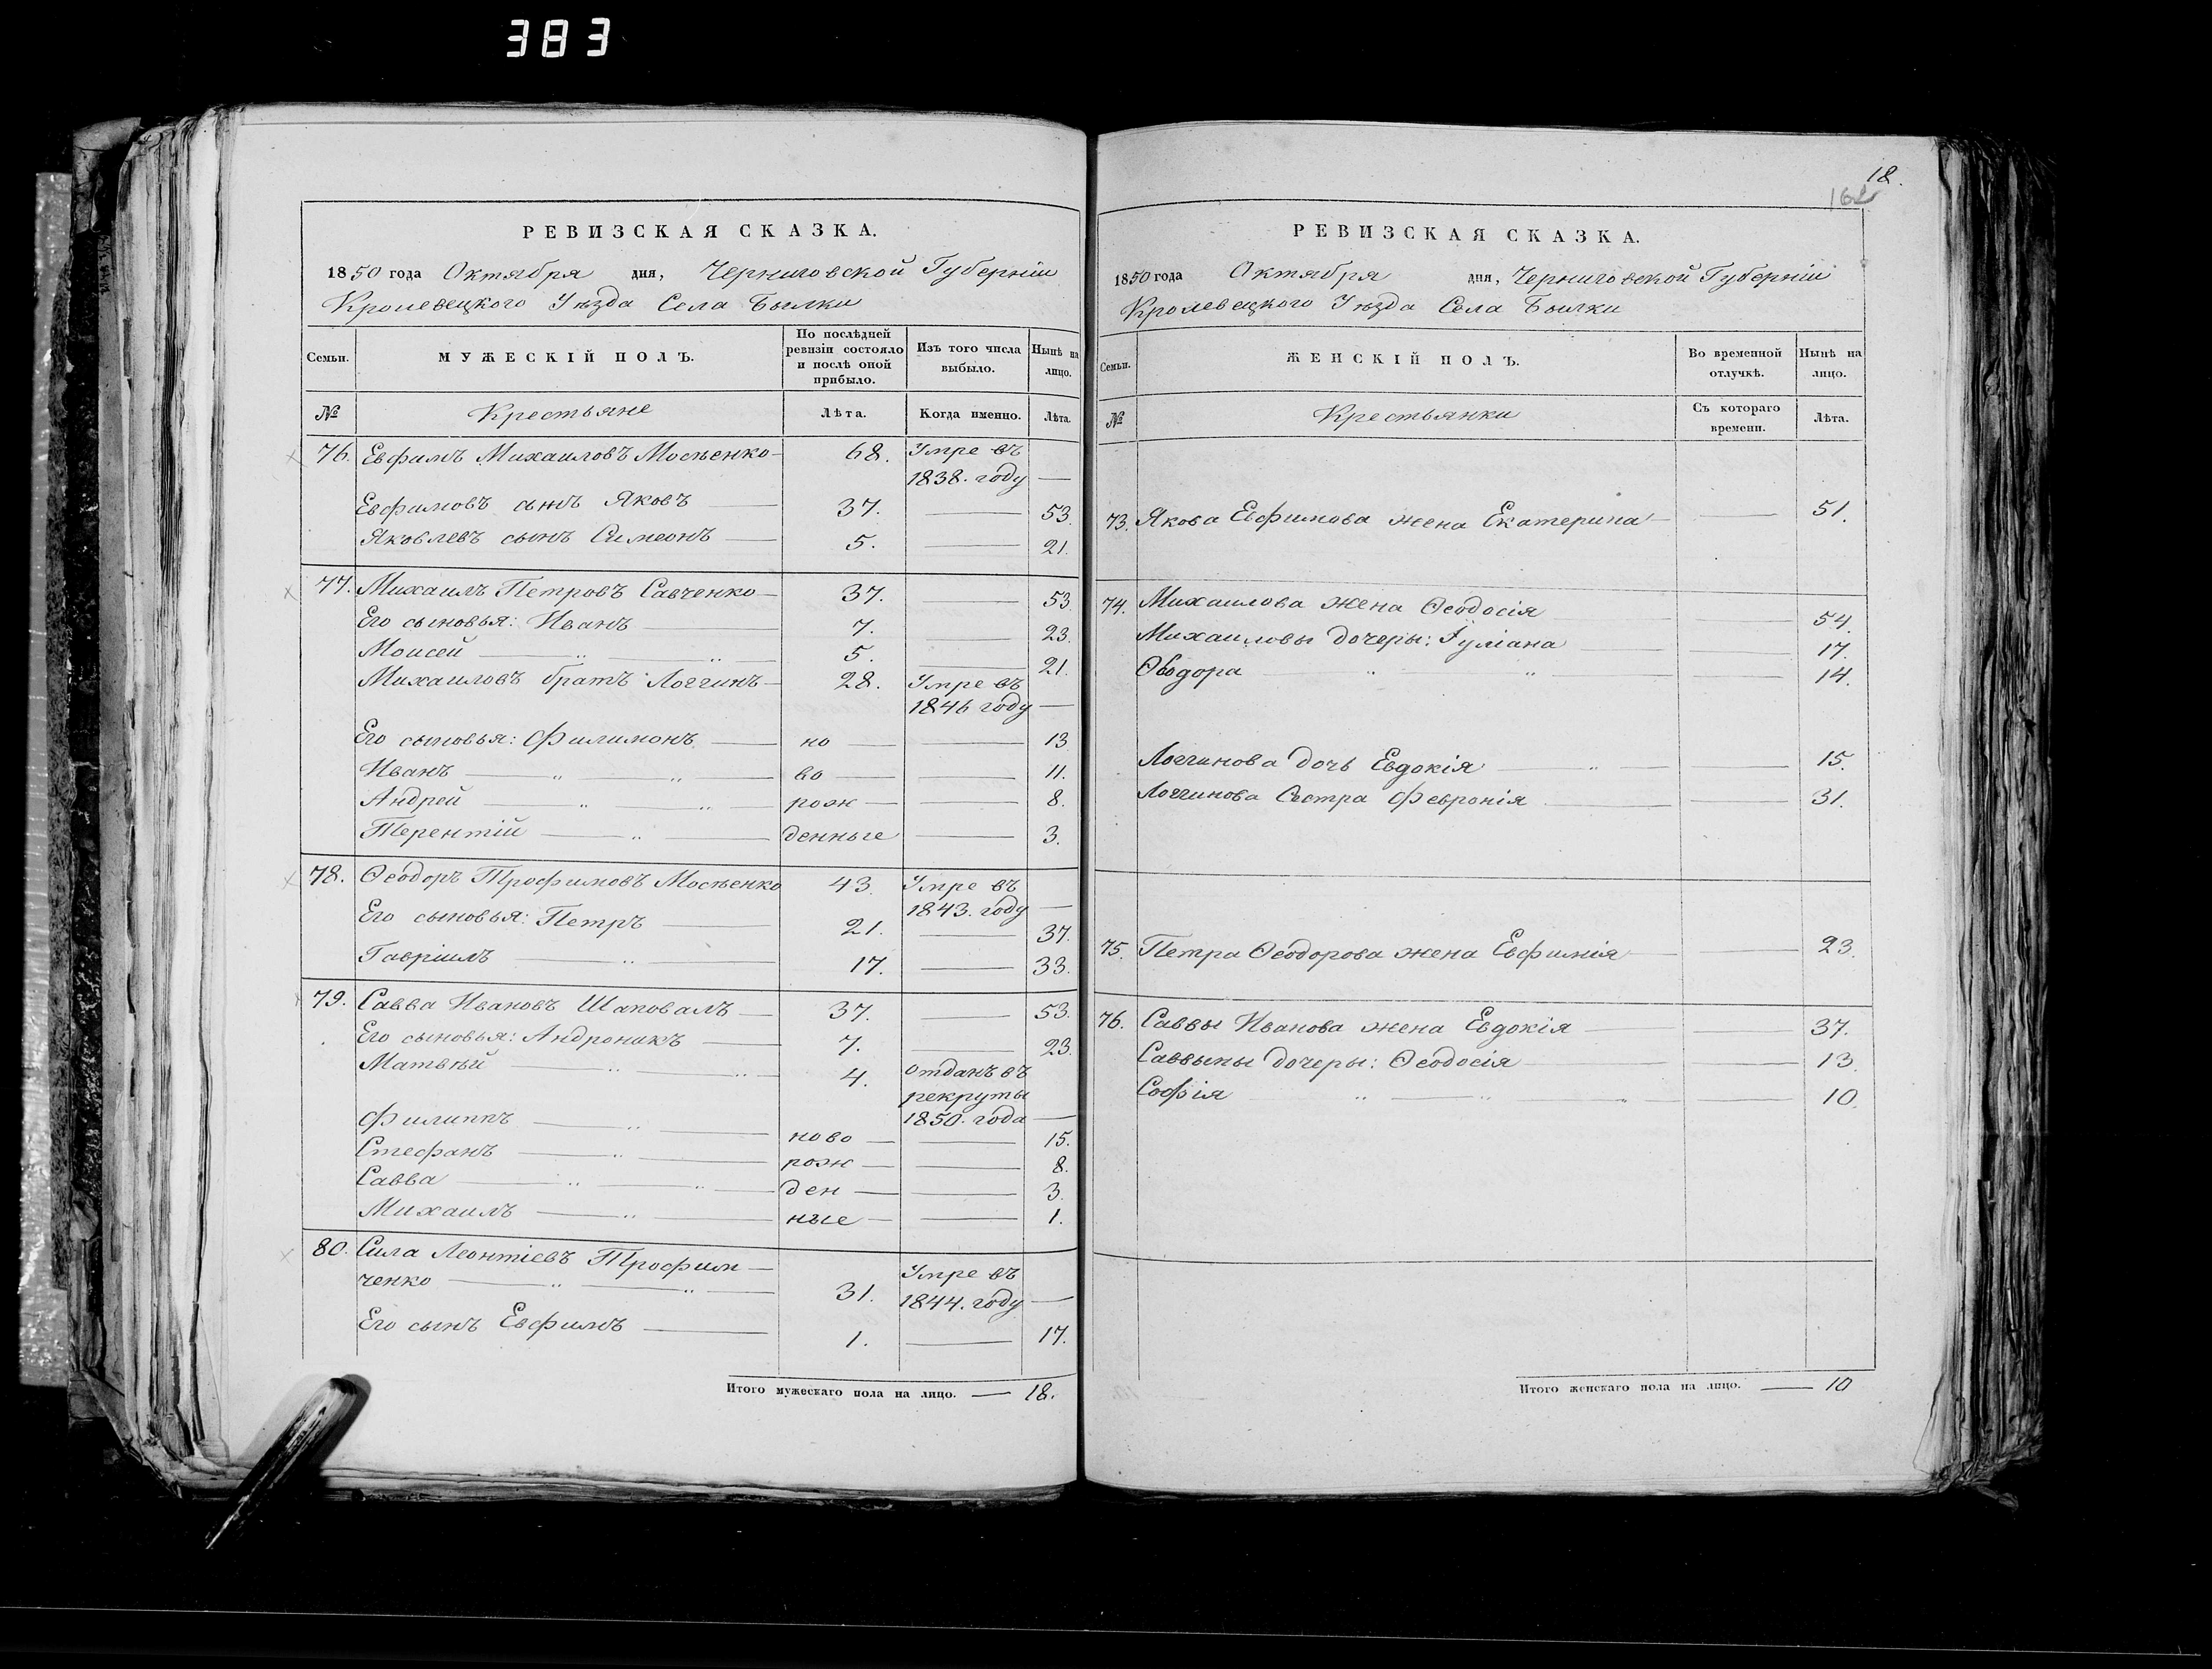 383
РЕВИЗСКАЯ СКАЗКА.
1850 года Октября дня, Черниговской Губерніи
Кролевецкого Уѣзда Села Былки
Семьи. МУЖЕСКІЙ ПОЛЪ. По послѣдней ревизіи состояло и послѣ оной прибыло. Изъ того числа выбыло. Нынѣ на лицо.
№ Крестьяне Лѣта. Когда именно. Лѣта.
76. Евфимъ Михаиловъ Мосѣенко 68. Умре въ
1838. году —
Евфимовъ сынъ Яковъ — 37. — 53.
Яковлевъ сынъ Симеонъ — 5. — 21.
77. Михаилъ Петровъ Савченко — 37. — 53.
Его сыновья: Иванъ — 7. — 23.
Моисей — „ — „ — 5. — 21.
Михаиловъ братъ Логгинъ — 28. Умре въ
1846 году —
Его сыновья: Филимонъ — но — — 13
Иванъ — „ — „ — во — — 11.
Андрей — „ — „ — рож — — 8.
Терентій — „ — денные — 3.
78. Ѳеодоръ Трофимовъ Мосѣенко 43. Умре въ
1843. году —
Его сыновья: Петръ — 21. — 37.
Гавріилъ — „ — 17. — 33.
79. Савва Ивановъ Шаповалъ — 37. — 53.
Его сыновья: Андроникъ — 7. — 23.
Матвѣй — „ — „ — 4. отданъ въ
рекруты
1850. года —
Филиппъ — „ — ново — — 15.
Стефанъ — „ — рож — — 8.
Савва — „ — „ — ден — — 3.
Михаилъ — „ — ные — — 1.
80. Сила Леонтіевъ Трофим—
ченко — „ — „ — 31. Умре въ
1844. году —
Его сынъ Евфимъ — 1. — 17.
Итого мужескаго пола на лицо. — 18.
18.
162
РЕВИЗСКАЯ СКАЗКА.
1850 года Октября дня, Черниговской Губерніи
Кролевецкого Уѣзда Села Былки
Семьи. ЖЕНСКІЙ ПОЛЪ. Во временной отлучкѣ. Нынѣ на лицо.
№ Крестьянки Съ котораго времени. Лѣта.
73. Якова Евфимова жена Екатерина — — 51.
74. Михаилова жена Ѳеодосія — — 54.
Михаиловы дочеры: Іуліана — — 17.
Ѳеодора — „ — „ — — 14.
Логгинова дочь Евдокія — „ — — 15.
Логгинова Сестра Февронія — — 31.
75. Петра Ѳеодорова жена Евфимія — — 23.
76. Саввы Иванова жена Евдокія — — 37.
Саввыны дочеры: Ѳеодосія — — 13.
Софія — „ — „ — „ — 10.
Итого женскаго пола на лицо. — 10